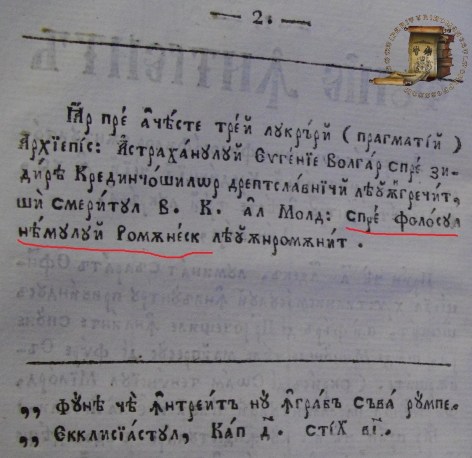 — 2. —
Ꙗ҆р пре́ а҆че́сте тре́й лꙋкрꙋ́рй ( прагматі́й )
Архїепі́с: А҆страха́нꙋлꙋй Єѵге́нїе Волга́р спре́ зи-
ди́рѣ Крединчо́шилѡр дрептсла́вничй лѣꙋ҆́ꙟгречи́т,
шѝ смери́тꙋл В. К. а҆́л Молд: спре́ фоло́сꙋл
нѣ́мꙋлꙋй Ромѫне́ск лѣꙋ҆́ѫнромѫни́т .
„ Фꙋ́нѣ чѐ ꙟ҆нтреи́тъ нꙋ ꙟ҆гра́бъ съва рꙋ́мпе.
„ Єкклисїа́стꙋл, Ка́п д҃. сті́х в҃і.